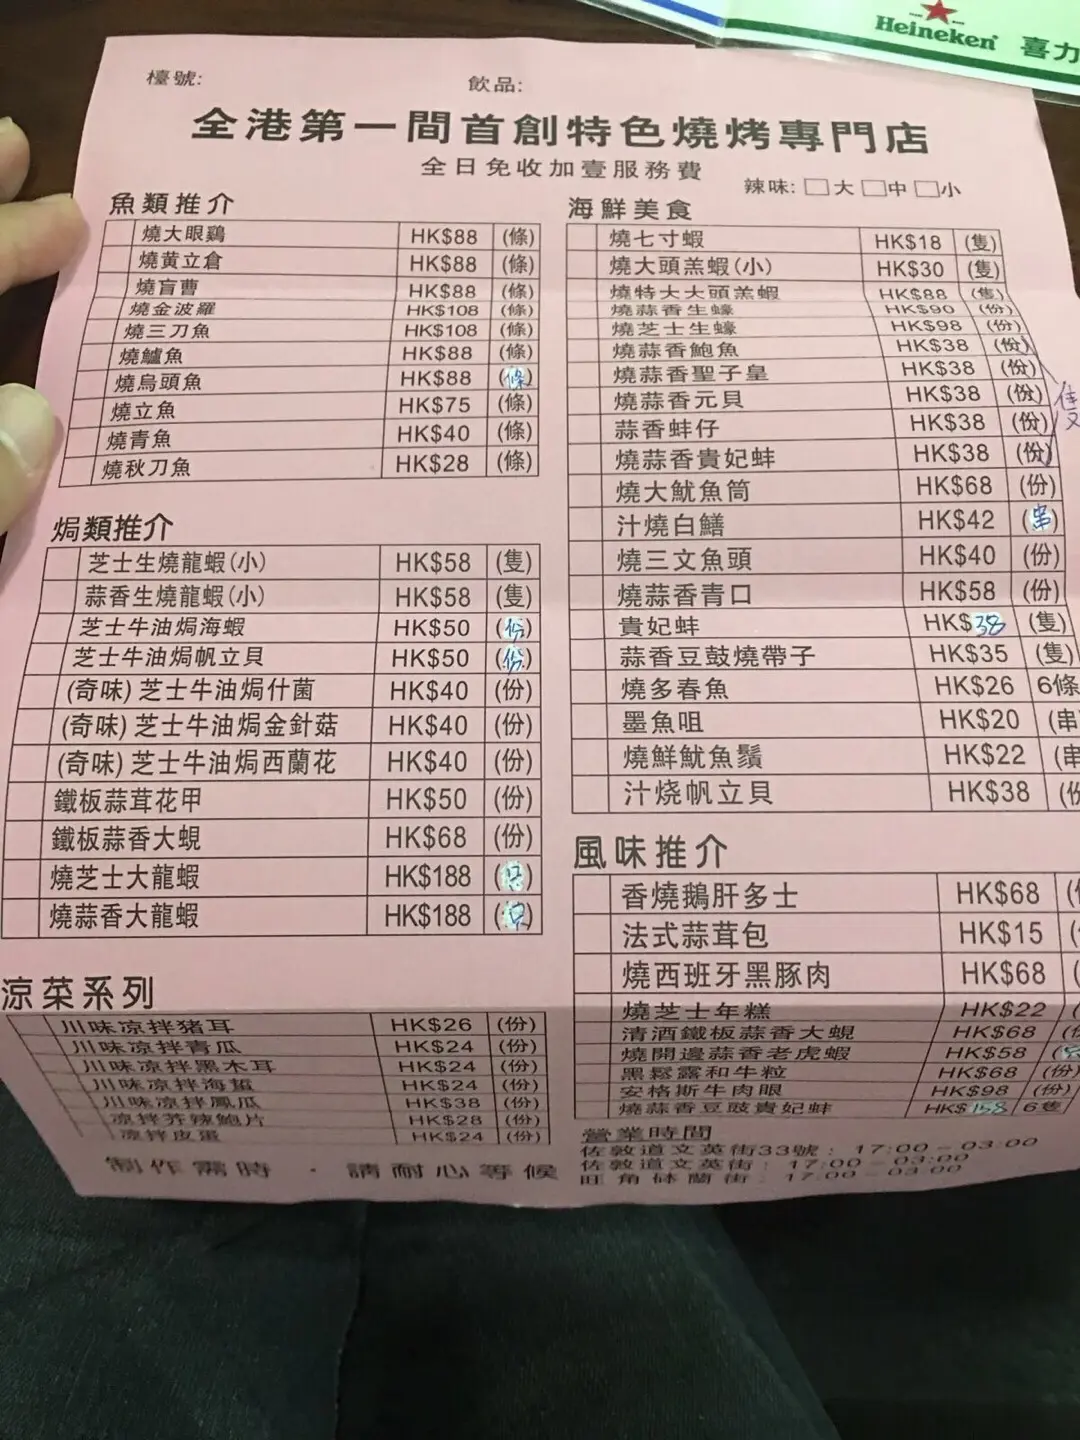 Heineken 喜力
檯號:
飲品:
全港第一間首創特色燒烤專門店
全日免收加壹服務費
辣味: □大 □中 □小
魚類推介
燒大眼鷄 HK$88 (條)
燒黄立倉 HK$88 (條)
燒盲曹 HK$88 (條)
燒金波羅 HK$108 (條)
燒三刀魚 HK$108 (條)
燒鱸魚 HK$88 (條)
燒烏頭魚 HK$88 (條)
燒立魚 HK$75 (條)
燒青魚 HK$40 (條)
燒秋刀魚 HK$28 (條)
焗類推介
芝士生燒龍蝦(小) HK$58 (隻)
蒜香生燒龍蝦(小) HK$58 (隻)
芝士牛油焗海蝦 HK$50 (份)
芝士牛油焗帆立貝 HK$50 (份)
(奇味) 芝士牛油焗什菌 HK$40 (份)
(奇味) 芝士牛油焗金針菇 HK$40 (份)
(奇味) 芝士牛油焗西蘭花 HK$40 (份)
鐵板蒜茸花甲 HK$50 (份)
鐵板蒜香大蜆 HK$68 (份)
燒芝士大龍蝦 HK$188 (只)
燒蒜香大龍蝦 HK$188 (只)
涼菜系列
川味凉拌猪耳 HK$26 (份)
川味凉拌青瓜 HK$24 (份)
川味凉拌黑木耳 HK$24 (份)
川味凉拌海蜇 HK$24 (份)
川味凉拌鳳瓜 HK$38 (份)
凉拌芥辣鮑片 HK$28 (份)
凉拌皮蛋 HK$24 (份)
制作需時 · 請耐心等候
海鮮美食
燒七寸蝦 HK$18 (隻)
燒大頭羔蝦(小) HK$30 (隻)
燒特大大頭羔蝦 HK$88 (隻)
燒蒜香生蠔 HK$90 (份)
燒芝士生蠔 HK$98 (份)
燒蒜香鮑魚 HK$38 (份)
燒蒜香聖子皇 HK$38 (份)
燒蒜香元貝 HK$38 (份)
蒜香蚌仔 HK$38 (份)
燒蒜香貴妃蚌 HK$38 (份)
隻
燒大魷魚筒 HK$68 (份)
汁燒白鱔 HK$42 (串)
燒三文魚頭 HK$40 (份)
燒蒜香青口 HK$58 (份)
貴妃蚌 HK$38 (隻)
蒜香豆鼓燒帶子 HK$35 (隻)
燒多春魚 HK$26 6條
墨魚咀 HK$20 (串
燒鮮魷魚鬚 HK$22 (串
汁烧帆立貝 HK$38 (份
風味推介
香燒鵝肝多士 HK$68
法式蒜茸包 HK$15
燒西班牙黑豚肉 HK$68
燒芝士年糕 HK$22
清酒鐵板蒜香大蜆 HK$68 (份
燒開邊蒜香老虎蝦 HK$58 (只
黑鬆露和牛粒 HK$68 (份)
安格斯牛肉眼 HK$98 (份)
燒蒜香豆豉貴妃蚌 HK$158 6隻
營業時間
佐敦道文英街33號: 17:00 – 03:00
佐敦道文英街: 17:00 – 03:00
旺角砵蘭街: 17:00 – 03:00